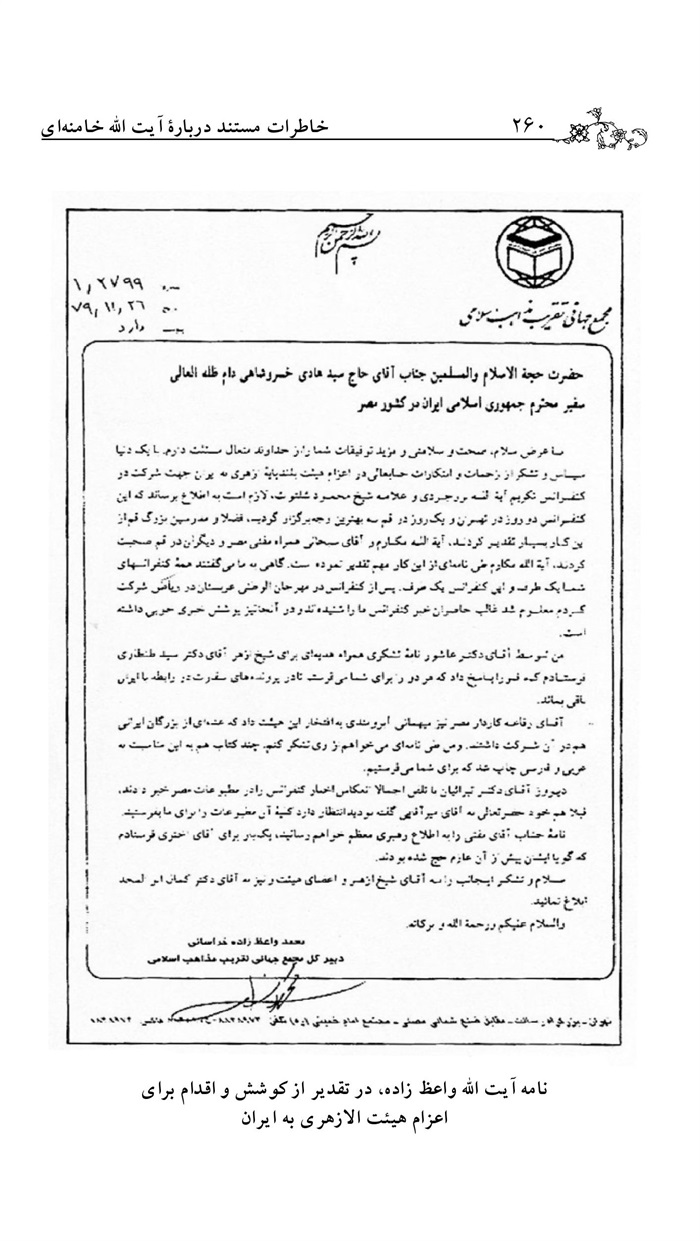 خاطرات مستند دربارۀ آیت الله خامنه‌ای
۲۶۰
بسم الله الرحمن الرحیم
مجمع جهانی تقریب مذاهب اسلامی
۱,۲۷۹۹
۷۹,۱۱,۲۶
دارد
حضرت حجة الاسلام والمسلمین جناب آقای حاج سید هادی خسروشاهی دام ظله العالی
سفیر محترم جمهوری اسلامی ایران در کشور مصر
با عرض سلام، صحت و سلامتی و مزید توفیقات شما را از خداوند متعال مسئلت دارم. با یک دنیا
سپاس و تشکر از زحمات و ابتکارات جنابعالی در اعزام هیئت بلندپایۀ ازهری به ایران جهت شرکت در
کنفرانس تکریم آیة الله بروجردی و علامه شیخ محمود شلتوت، لازم است به اطلاع برساند که این
کنفرانس دو روز در تهران و یک روز در قم به بهترین وجه برگزار گردید، فضلا و مدرسین بزرگ قم از
این کار بسیار تقدیر کردند، آیة الله مکارم و آقای سبحانی همراه مفتی مصر و دیگران در قم صحبت
کردند، آیة الله مکارم طی نامه‌ای از این کار مهم تقدیر نموده است. گاهی به ما می‌گفتند همۀ کنفرانسهای
شما یک طرف و این کنفرانس یک طرف. پس از کنفرانس در مهرجان الوطنی عربستان در ریاض شرکت
کردم معلوم شد غالب حاضران خبر کنفرانس ما را شنیده‌اند و در آنجا نیز پوشش خبری خوبی داشته
است.
من توسط آقای دکتر عاشور نامۀ تشکری همراه هدیه‌ای برای شیخ ازهر آقای دکتر سید طنطاوی
فرستادم که فوراً پاسخ داد که هر دو را برای شما می‌فرستم تا در پرونده‌های سفارت در رابطه با ایران
باقی بماند.
آقای رفاعه کاردار مصر نیز میهمانی آبرومندی به افتخار این هیئت داد که عده‌ای از بزرگان ایرانی
هم در آن شرکت داشتند. و من طی نامه‌ای می‌خواهم از وی تشکر کنم. چند کتاب هم به این مناسبت به
عربی و فارسی چاپ شد که برای شما می‌فرستیم.
دیروز آقای دکتر تبرائیان با تلفن اجمالاً انعکاس اخبار کنفرانس را در مطبوعات مصر خبر دادند،
قبلا هم خود حضرتعالی به آقای میرآقایی گفته بودید انتظار دارد کلیۀ آن مطبوعات را برای ما بفرستید.
نامۀ جناب آقای مفتی را به اطلاع رهبری معظم خواهم رسانید، یک بار برای آقای اختری فرستادم
که گویا ایشان پیش از آن عازم حج شده بودند.
سلام و تشکر اینجانب را به آقای شیخ ازهر و اعضای هیئت و نیز به آقای دکتر کمال ابوالمجد
ابلاغ نمائید.
والسلام علیکم ورحمة الله و برکاته.
محمد واعظ زاده خراسانی
دبیر کل مجمع جهانی تقریب مذاهب اسلامی
تهران - بزرگراه رسالت - مقابل ضلع شمالی مصلی - مجتمع امام خمینی (ره) تلفن:
نامه آیت الله واعظ زاده، در تقدیر از کوشش و اقدام برای
اعزام هیئت الازهری به ایران